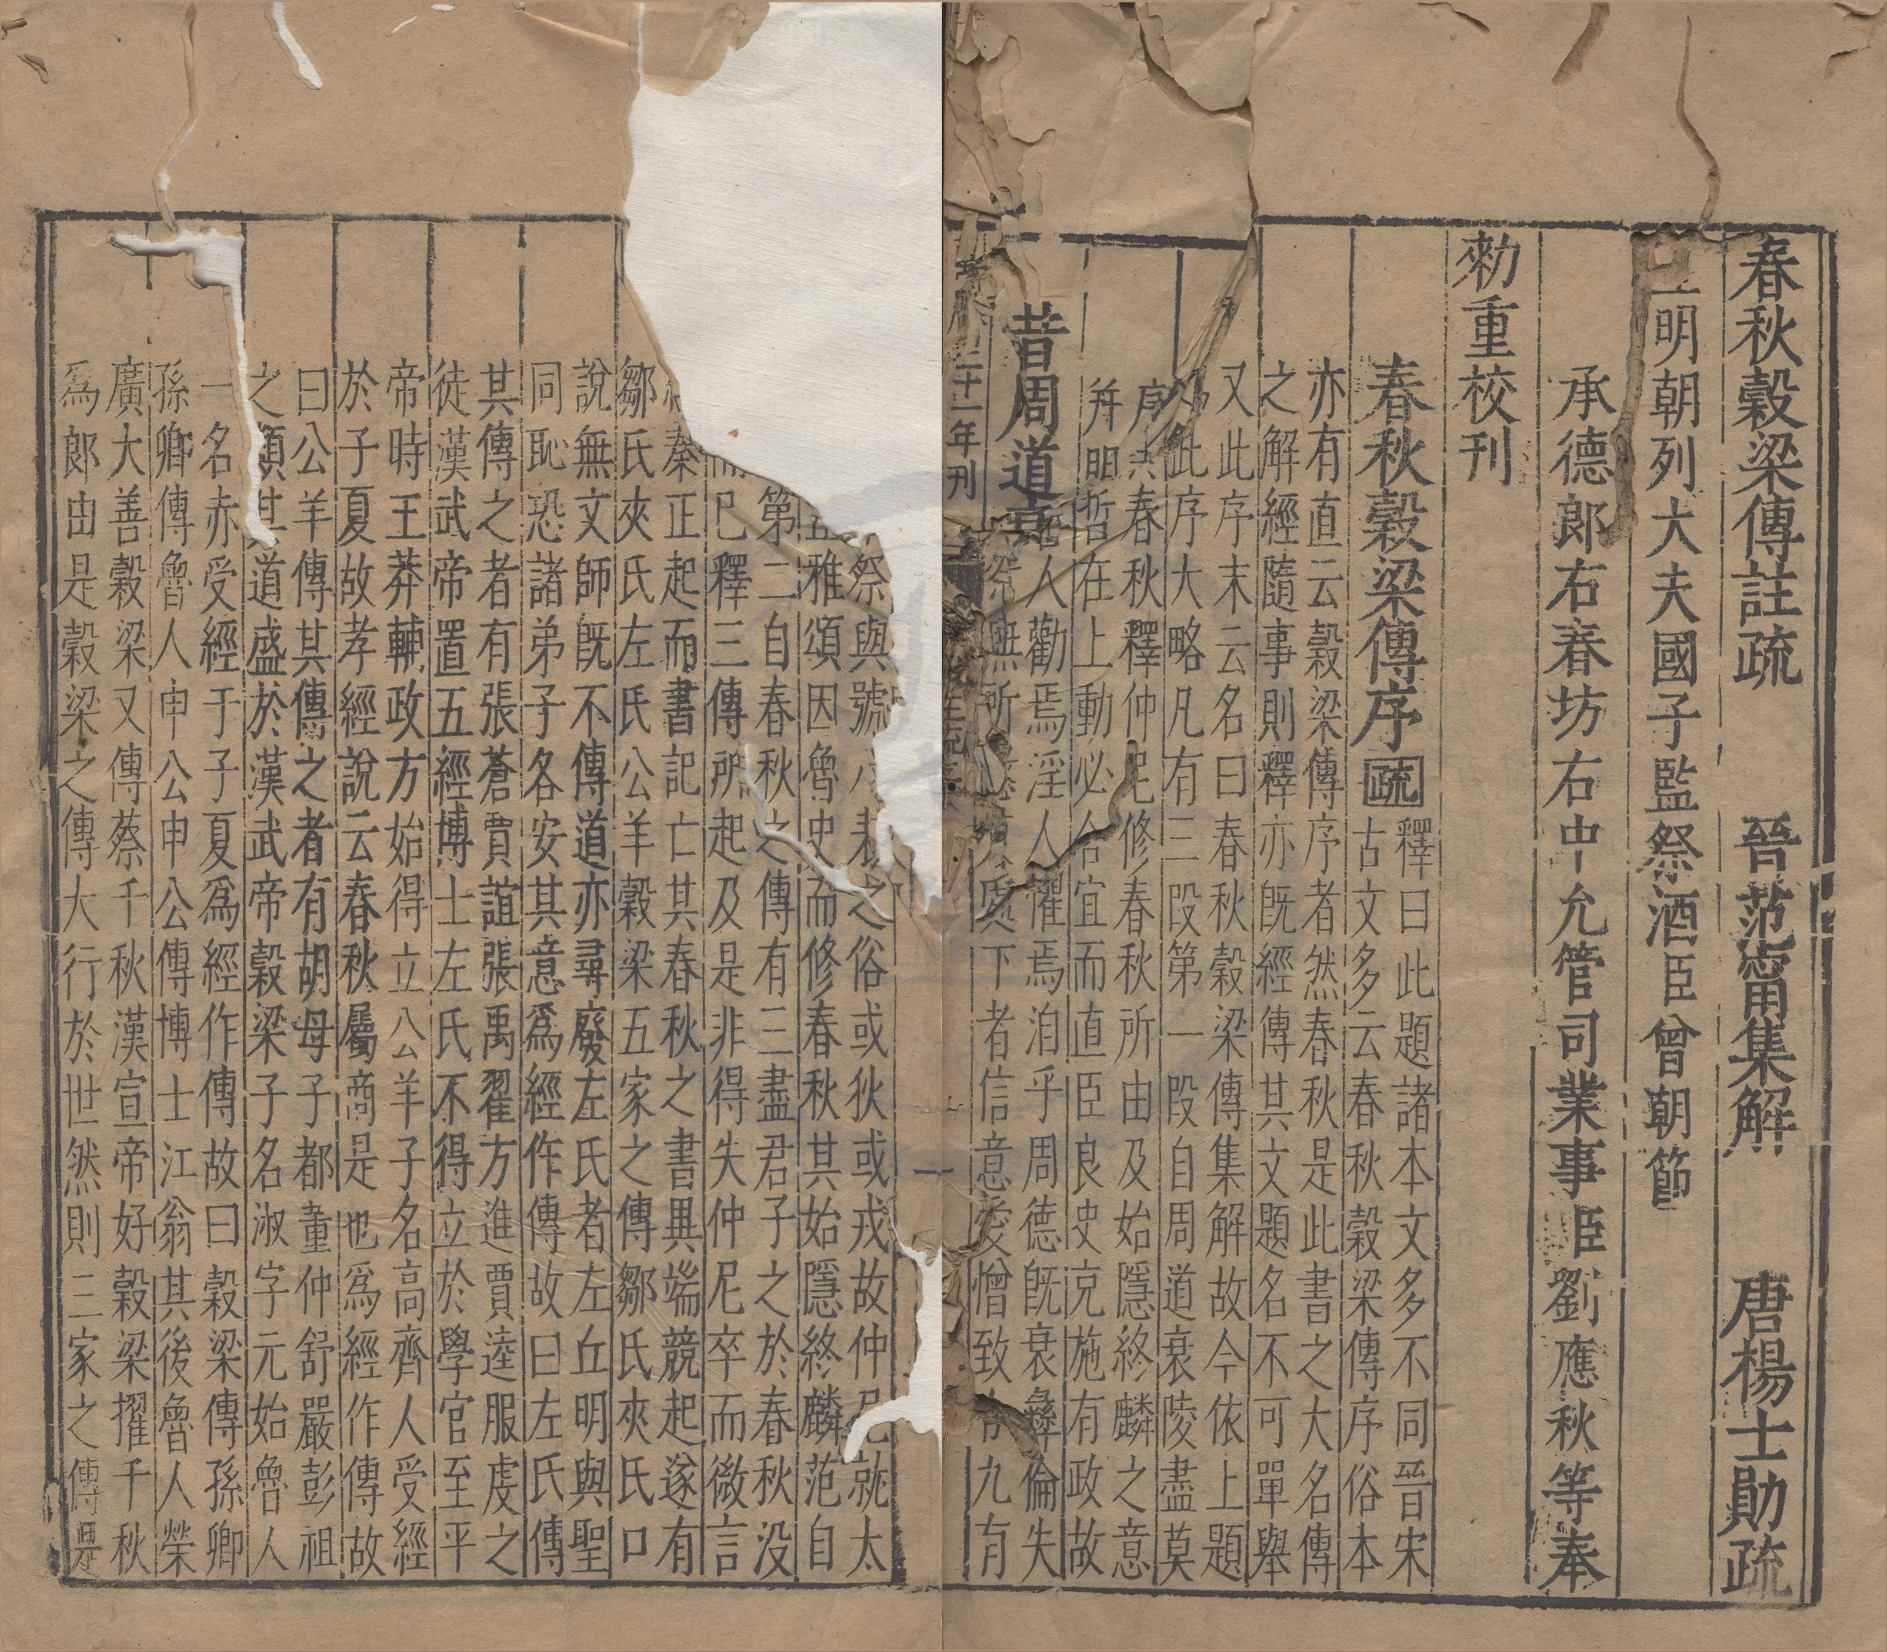 春秋穀梁傳註疏 晉范甯集解 唐楊士勛疏
明朝列大夫國子監祭酒臣曾朝節
承德郎右春坊右中允管司業事臣劉應秋等奉
勑重校刊
春秋穀梁傳序疏
釋曰此題諸本文多不同晉宋
古文多云春秋穀梁傳序俗本
亦有直云穀梁傳序者然春秋是此書之大名傳
之解經隨事則釋亦既經傳其文題名不可單舉
又此序末云名曰春秋穀梁傳集解故今依上題
此序大略凡有三段第一段自周道衰陵盡莫
序 春秋釋仲尼修春秋所由及始隱終麟之意
并明哲在上動必合宜而直臣良史克施有政故
人勸焉淫人懼焉洎乎周德既衰彝倫失
無所 下者信意愛憎致 九有
昔周道
二十一年刊
祭與號 之俗或狄或戎故仲尼就太
雅頌因魯史而修春秋其始隱終麟范自
第二自春秋之傳有三盡君子之於春秋没
而已釋三傳所起及是非得失仲尼卒而微言
秦正起而書記亡其春秋之書異端競起遂有
鄒氏夾氏左氏公羊穀梁五家之傳鄒氏夾氏口
說無文師既不傳道亦尋廢左氏者左丘明與聖
同恥恐諸弟子各安其意爲經作傳故曰左氏傳
其傳之者有張蒼賈誼張禹翟方進賈逵服虔之
徒漢武帝置五經博士左氏不得立於學官至平
帝時王莽輔政方始得立公羊子名高齊人受經
於子夏故孝經說云春秋屬商是也爲經作傳故
曰公羊傳其傳之者有胡母子都董仲舒嚴彭祖
之類其道盛於漢武帝穀梁子名淑字元始魯人
一名赤受經于子夏爲經作傳故曰穀梁傳孫卿
孫卿傳魯人申公申公傳博士江翁其後魯人榮
廣大善穀梁又傳蔡千秋漢宣帝好穀梁擢千秋
爲郎由是穀梁之傳大行於世然則三家之傳是